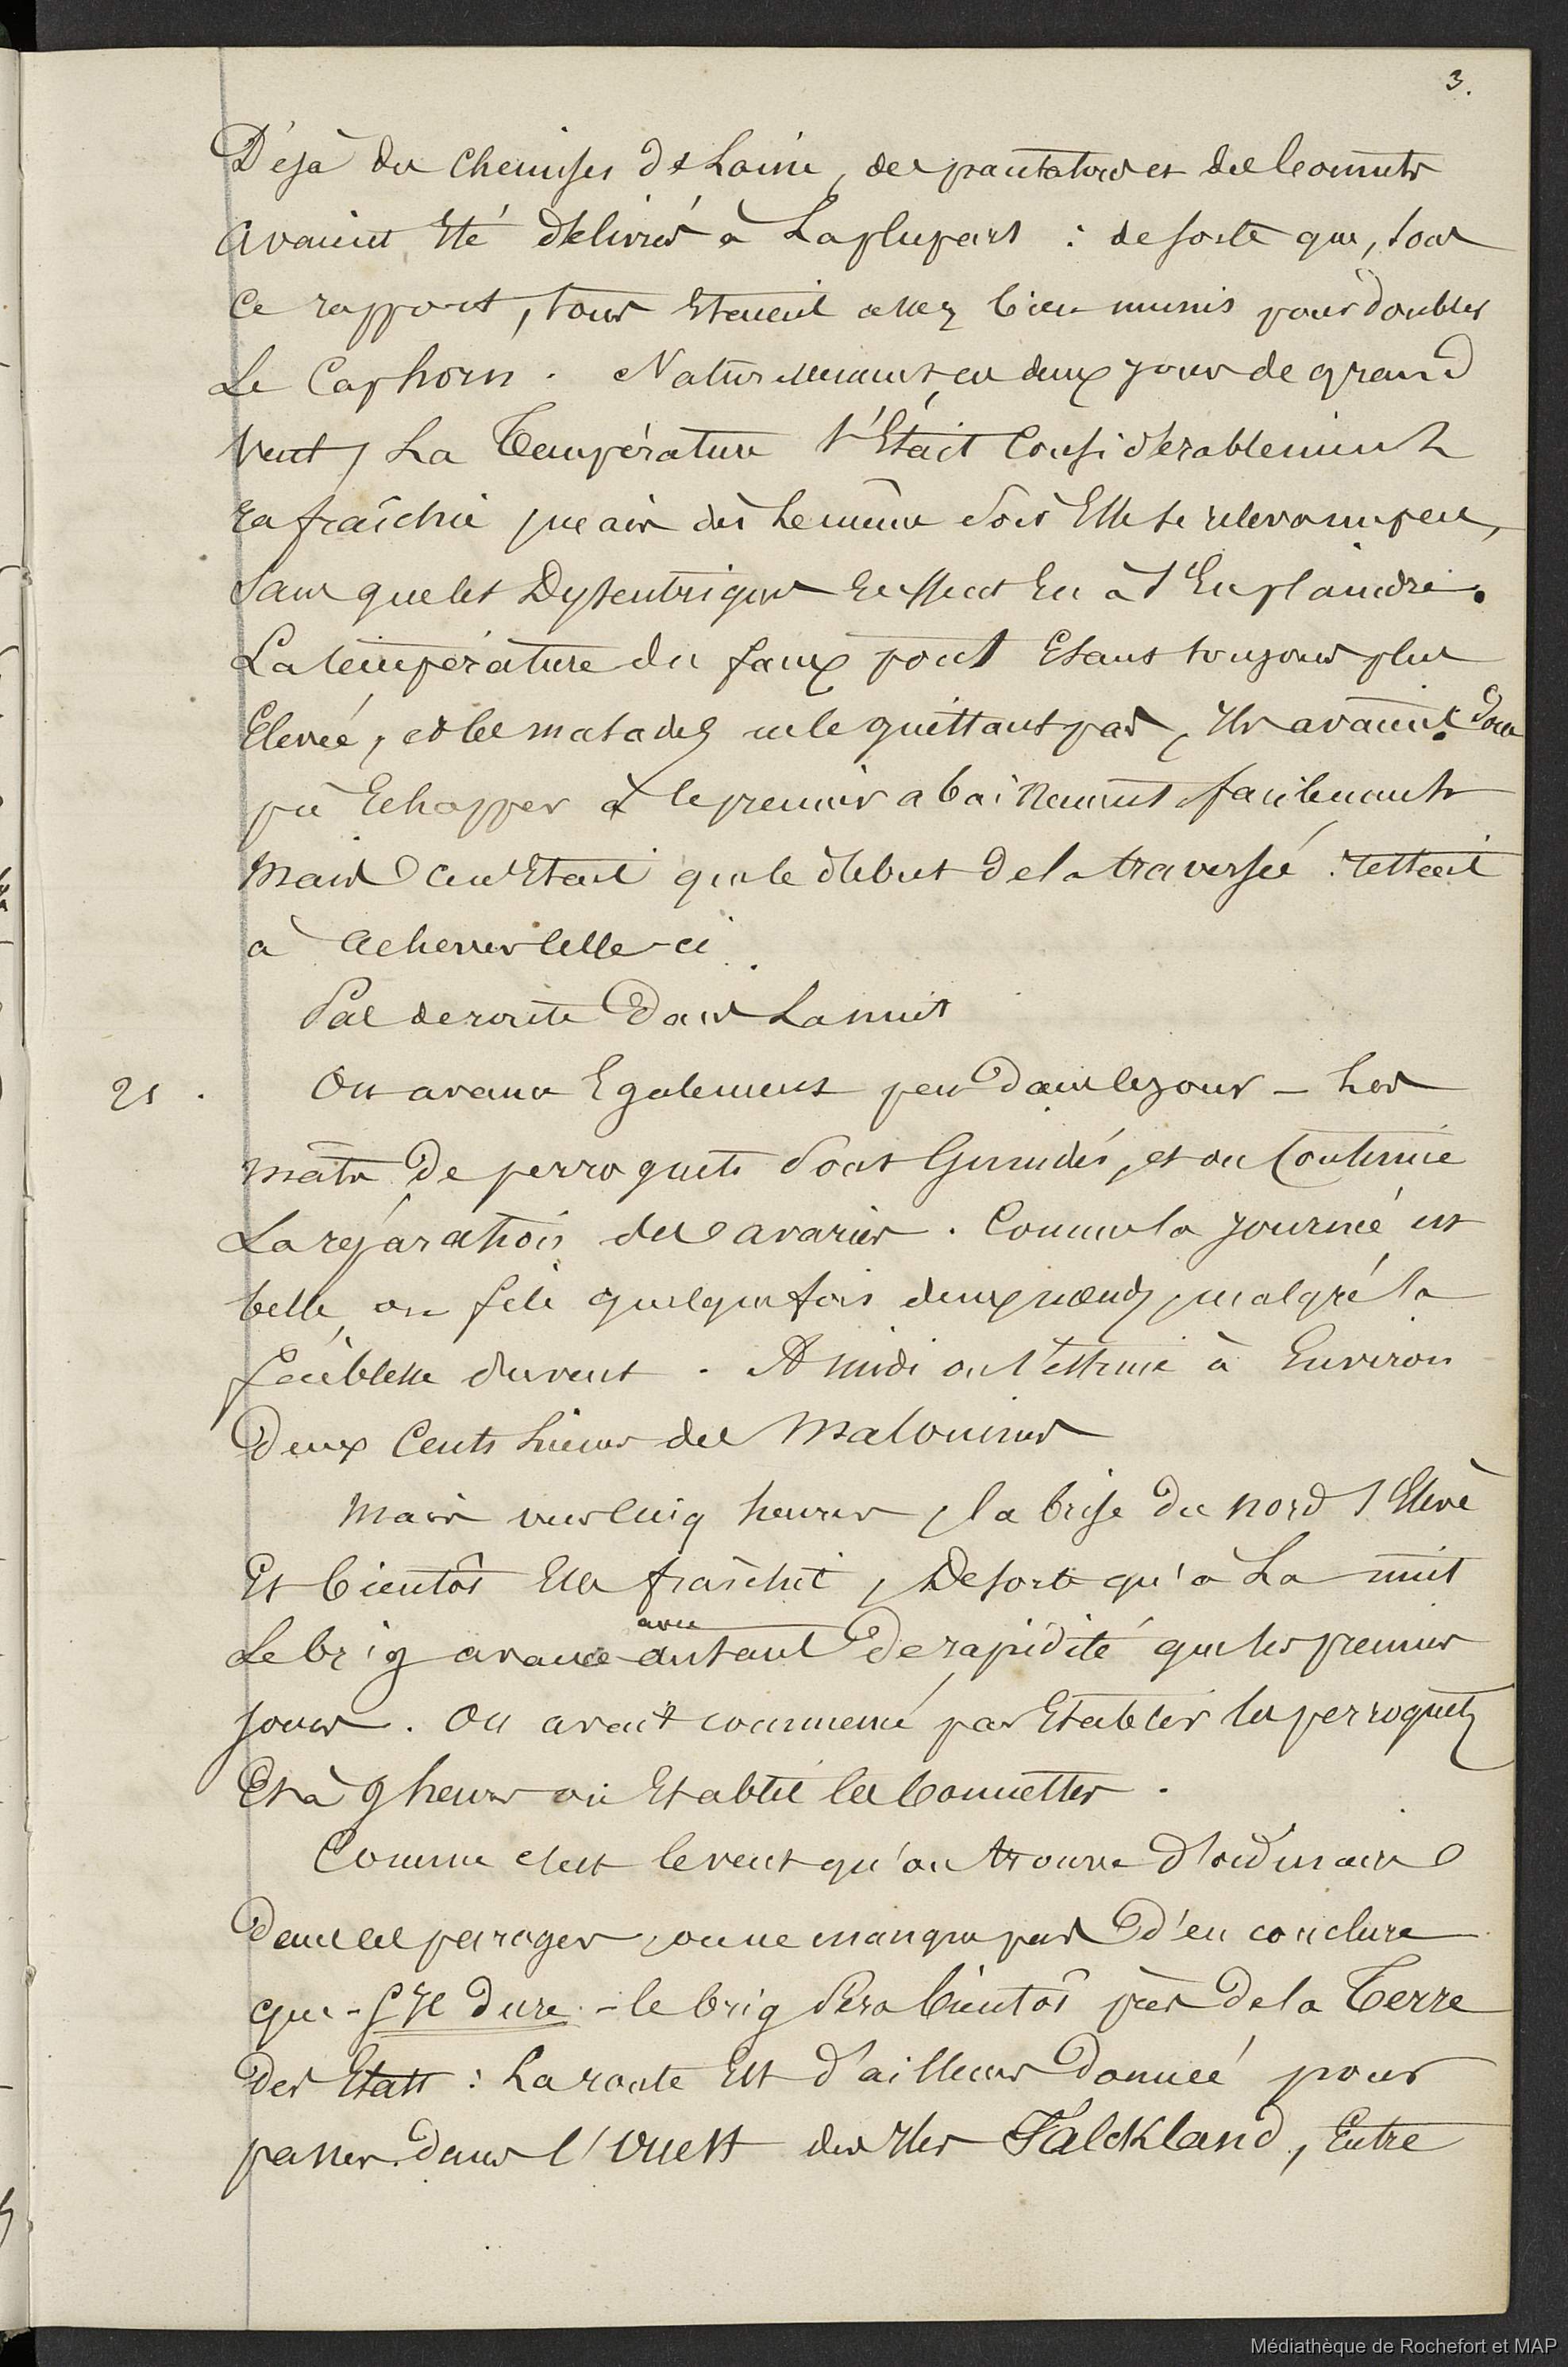 3.
Déjà des chemises de Laine, des pantalons et des bonnets
avaient été délivrés à La plupart : de sorte que, sous
ce rapport, tous étaient assez bien munis pour doubler
Le Cap horn. Naturellement, en deux jours de grand
vent, La Température s'était Considérablement
rafraîchie mais dès Le même soir Elle se releva un peu,
sans que les Dysentriques Eussent Eu à s'En plaindre.
La température du faux pont étant toujours plus
Elevée, et les malades ne le quittant pas, Ils avaient donc
pu Echapper à le premier abaissement facilement
mais ce n'était que le début de la traversée : restait
à achever celle-ci.
Pas de route Dans La nuit
21. On avance Egalement peu dans le jour – Les
mâts de perroquets sont Guindés, et on Continue
La réparation des avaries. Comme la journée est
belle, on file quelquefois deux nœuds, malgré la
faiblesse du vent. A midi on s'estime à Environ
Deux Cents Lieues des Malouines
Mais vers cinq heures, la brise du nord s'élève
Et bientôt Elle fraîchit, De sorte qu'à La nuit
Le brig avance avec autant De rapidité que les premiers
jours. On avait commencé par Etablir les perroquets
Et à 9 heures on Etablit les bonnettes.
Comme c'est le vent qu'on trouve d'ordinaire
Dans ces parages, on ne manque pas D'en conclure
que - s'Il Dure - le brig sera bientôt près de la Terre
Des Etats : La route Est d'ailleurs Donnée pour
passer dans l'ouest des Iles Falckland, Entre
Médiathèque de Rochefort et MAP